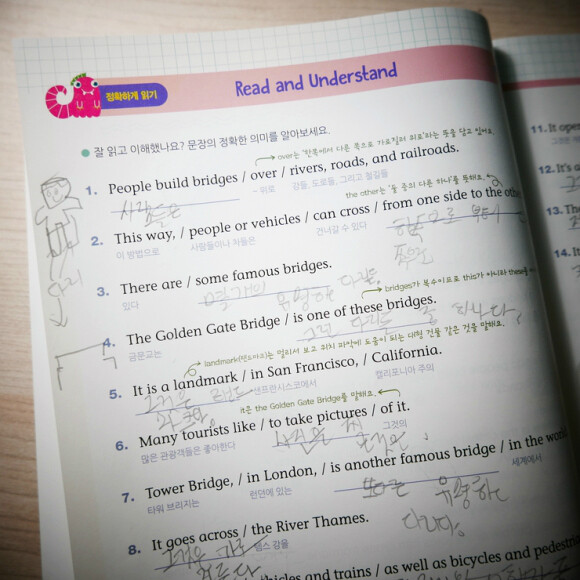 정확하게 읽기
Read and Understand
잘 읽고 이해했나요? 문장의 정확한 의미를 알아보세요.
over는 '한쪽에서 다른 쪽으로 가로질러 위로'라는 뜻을 담고 있어요.
1. People build bridges / over / rivers, roads, and railroads.
사람들은
~ 위로 강들, 도로들, 그리고 철길들
the other는 '둘 중의 다른 하나'를 뜻해요.
2. This way, / people or vehicles / can cross / from one side to the other
이 방법으로 사람들이나 차들은 건너갈 수 있다
3. There are / some famous bridges.
있다 유명한 다리들
bridges가 복수이므로 this가 아니라 these를
4. The Golden Gate Bridge / is one of these bridges.
금문교는
landmark(랜드마크)는 멀리서 보고 위치 파악에 도움이 되는 대형 건물 같은 것을 말해요.
5. It is a landmark / in San Francisco, / California.
그것은 샌프란시스코에서 캘리포니아 주의
it은 the Golden Gate Bridge를 말해요.
6. Many tourists like / to take pictures / of it.
많은 관광객들은 좋아한다 그것의
7. Tower Bridge, / in London, / is another famous bridge / in the world
타워 브리지는 런던에 있는 또 다른 유명한 세계에서
다리다.
8. It goes across / the River Thames.
템스 강을
vehicles and trains / as well as bicycles and pedestri
11. It ope
12.
13. The
14. It